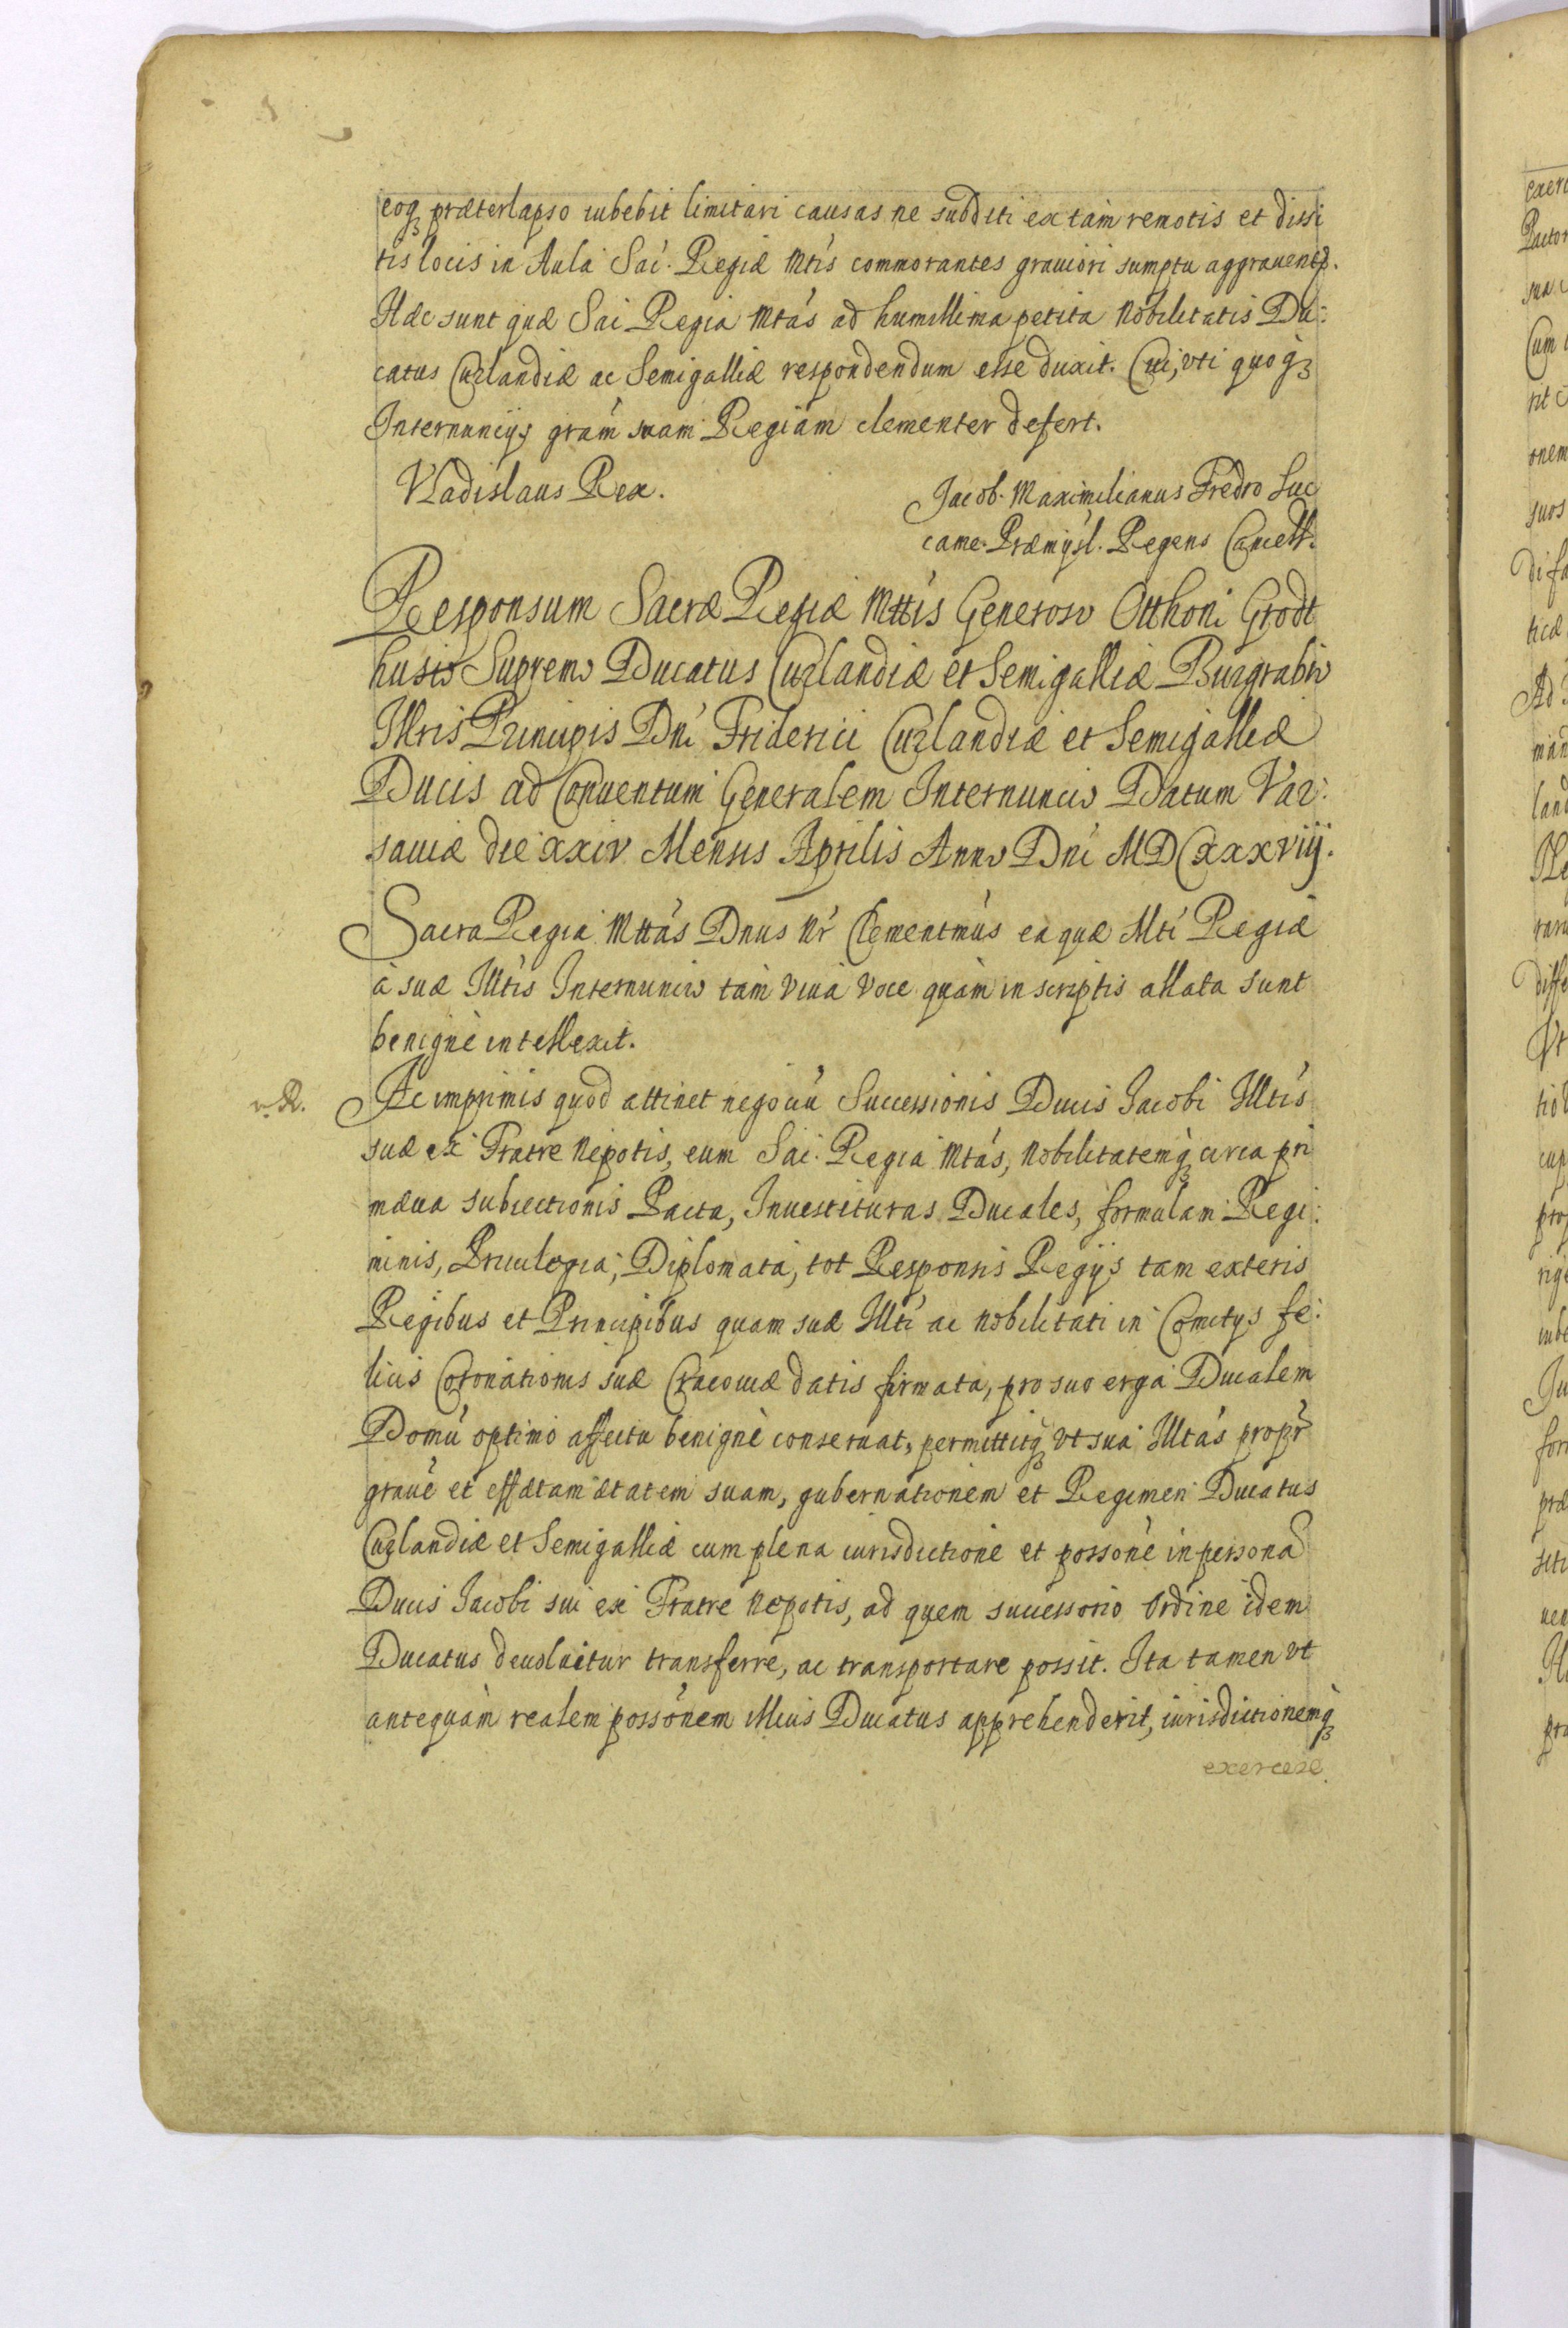 eoq́ꝫ præterlapso iubebit limitari causas ne subditi ex tàm remotis et dissi
tis locis in Aula Sać. Regiæ Mtis commorantes grauiori sumptu aggrauentr.
Hæc sunt quæ Sac Regia Mtás ad humillima petita Nobilitatis Du:
catus Curlandiæ ac Semigalliæ respondendum esse duxit. Cui, vti quoq́ꝫ
Internuncijs grám suam Regiam clementer defert.
Vladislaus Rex.
Jacob. Maximilianus Fredro Suc
came. Præmÿsl. Regens Cancell.
Responsum Sacræ Regiæ Mttis Generoso Otthoni Grodt
husio Supremo Ducatus Curlandiæ et Semigalliæ Burgrabio
Illris Principis Dńi Friderici Curlandiæ et Semigalliæ
Ducis ad Conuentum Generalem Internuncio Datum Var:
sauiæ die xxiv Mensis Aprilis Anno Dńi MDCxxxviij.
Sacra Regia Mttás Dnus Nŕ Clementmús ea quæ Mti Regiæ
à suæ Illtis Internuncio tàm viua voce quàm in scriptis allata sunt
benignè intellexit.
Ac imprimis quod attinet negociú Successionis Ducis Jacobi Illtis
suæ ex Fratre Nepotis, eum Sac. Regia Mtás, Nobilitatemq́ꝫ circa pri
mæua subiectionis Pacta, Inuestituras Ducales, formulam Regi:
minis, Priuilegia, Diplomata, tot Responsis Regijs tam exteris
Regibus et Principibus quam suæ Illti ac Nobilitati in Comitys fe:
licis Coronationis suæ Cracouiæ datis firmata, pro suo erga Ducalem
Domú optimo affectu benignè conseruat, permittitq́ꝫ vt sua Illtás propŕ
grauē et effætam ætatem suam, gubernationem et Regimen Ducatus
Curlandiæ et Semigalliæ cum plena iurisdictione et possonè in persona
Ducis Jacobi sui ex Fratre Nepotis, ad quem successorio ordine idem
Ducatus deuoluitur transferre, ac transportare possit. Ita tamen vt
antequàm realem possónem illius Ducatus apprehenderit, iurisdictionemq́ꝫ
exercere